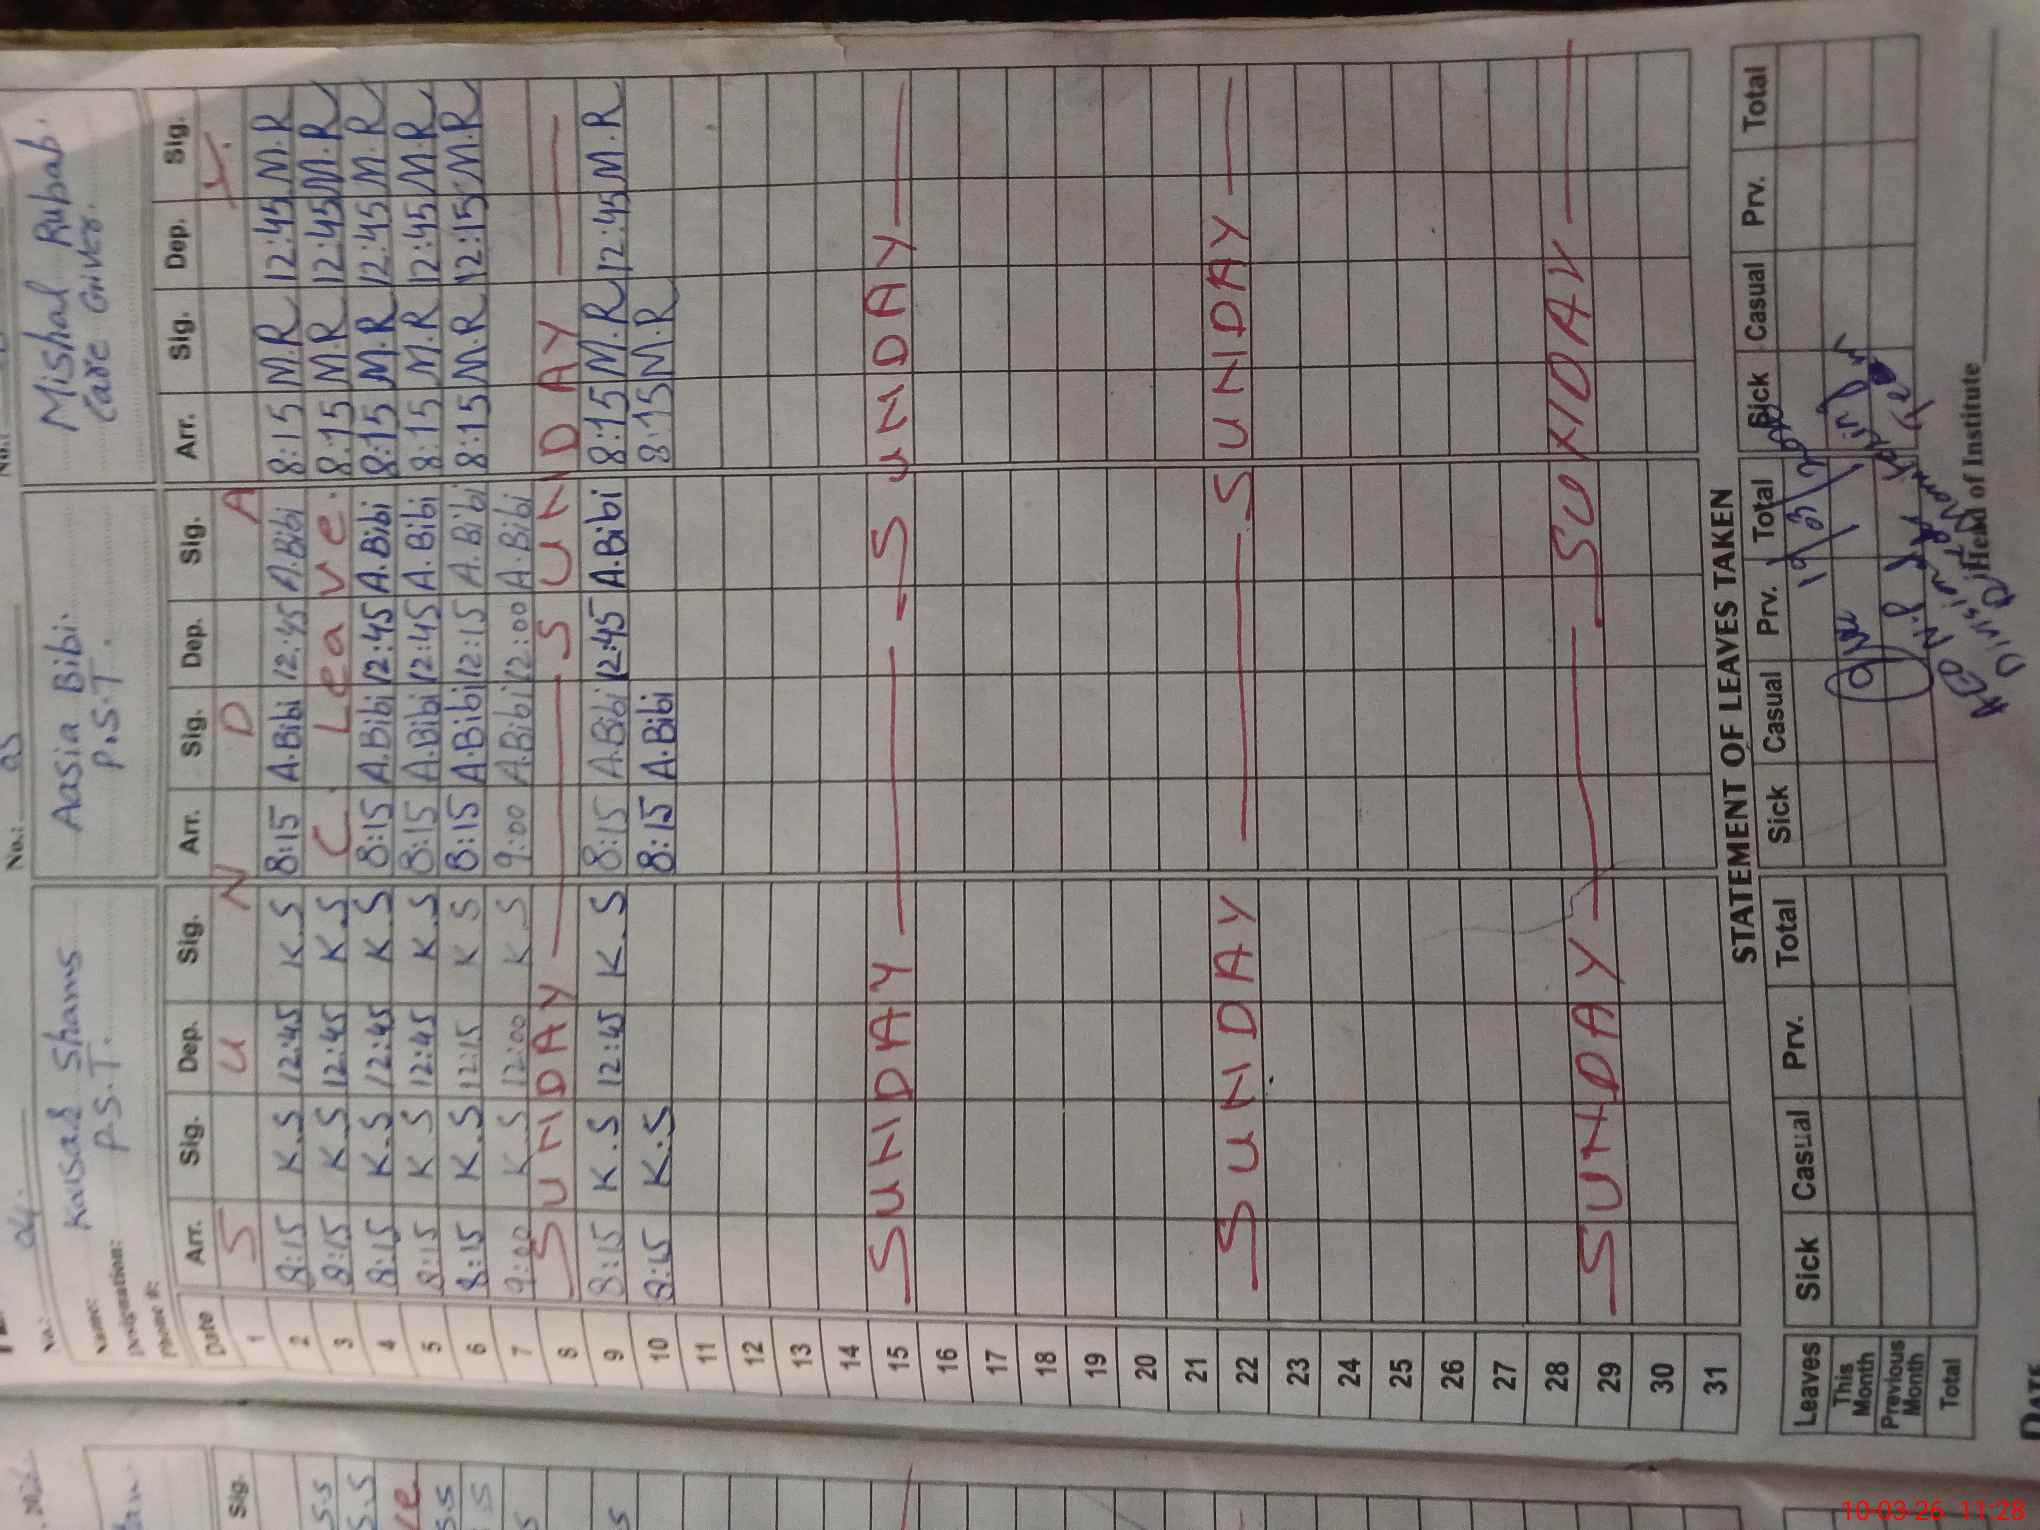 No.: 04. No.: 05 No.:
Name: Kausar Shams Aasia Bibi. Mishal Rubab.
Designation: P.S.T. P.S.T. Care Giver.
Phone #:
Date Arr. Sig. Dep. Sig. Arr. Sig. Dep. Sig. Arr. Sig. Dep. Sig.
1 S U N D A Y.
2 8:15 K.S 12:45 K.S 8:15 A.Bibi 12:45 A.Bibi 8:15 M.R 12:45 M.R
3 8:15 K.S 12:45 K.S C. Leave. 8:15 M.R 12:45 M.R
4 8:15 K.S 12:45 K.S 8:15 A.Bibi 12:45 A.Bibi 8:15 M.R 12:45 M.R
5 8:15 K S 12:45 K.S 8:15 A.Bibi 12:45 A.Bibi 8:15 M.R 12:45 M.R
6 8:15 K.S 12:15 K S 8:15 A.Bibi 12:15 A.Bibi 8:15 M.R 12:15 M.R
7 9:00 K.S 12:00 K.S 9:00 A.Bibi 12:00 A.Bibi
8 SUNDAY SUNDAY
9 8:15 K.S 12:45 K.S 8:15 A.Bibi 12:45 A.Bibi 8:15 M.R 12:45 M.R
10 8:15 K.S 8:15 A.Bibi 8:15 M.R
11
12
13
14
15 SUNDAY SUNDAY
16
17
18
19
20
21
22 SUNDAY SUNDAY
23
24
25
26
27
28
29 SUNDAY SUNDAY
30
31
STATEMENT OF LEAVES TAKEN
Leaves Sick Casual Prv. Total Sick Casual Prv. Total Sick Casual Prv. Total
This Month
Previous Month
Total
Head of Institute
10-03-26 11:28